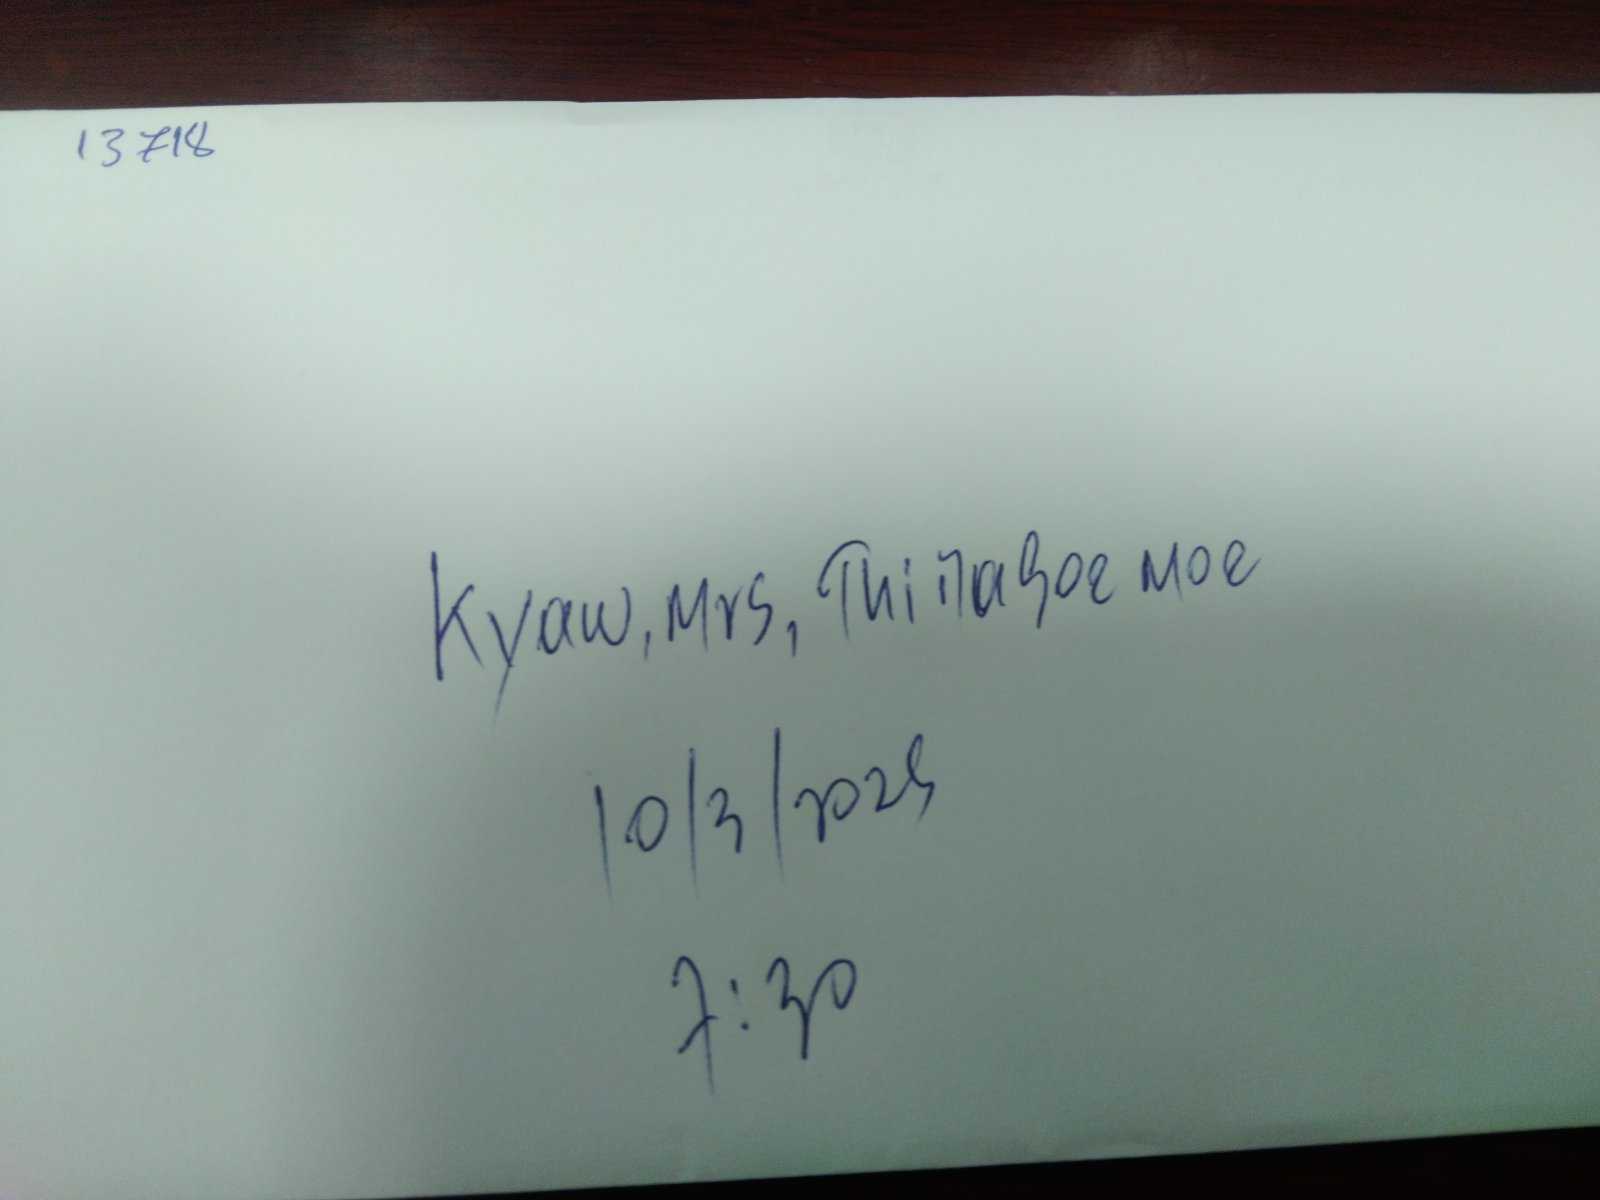 13718
Kyaw, Mrs, Thinasoe Moe
10/3/2025
7:30